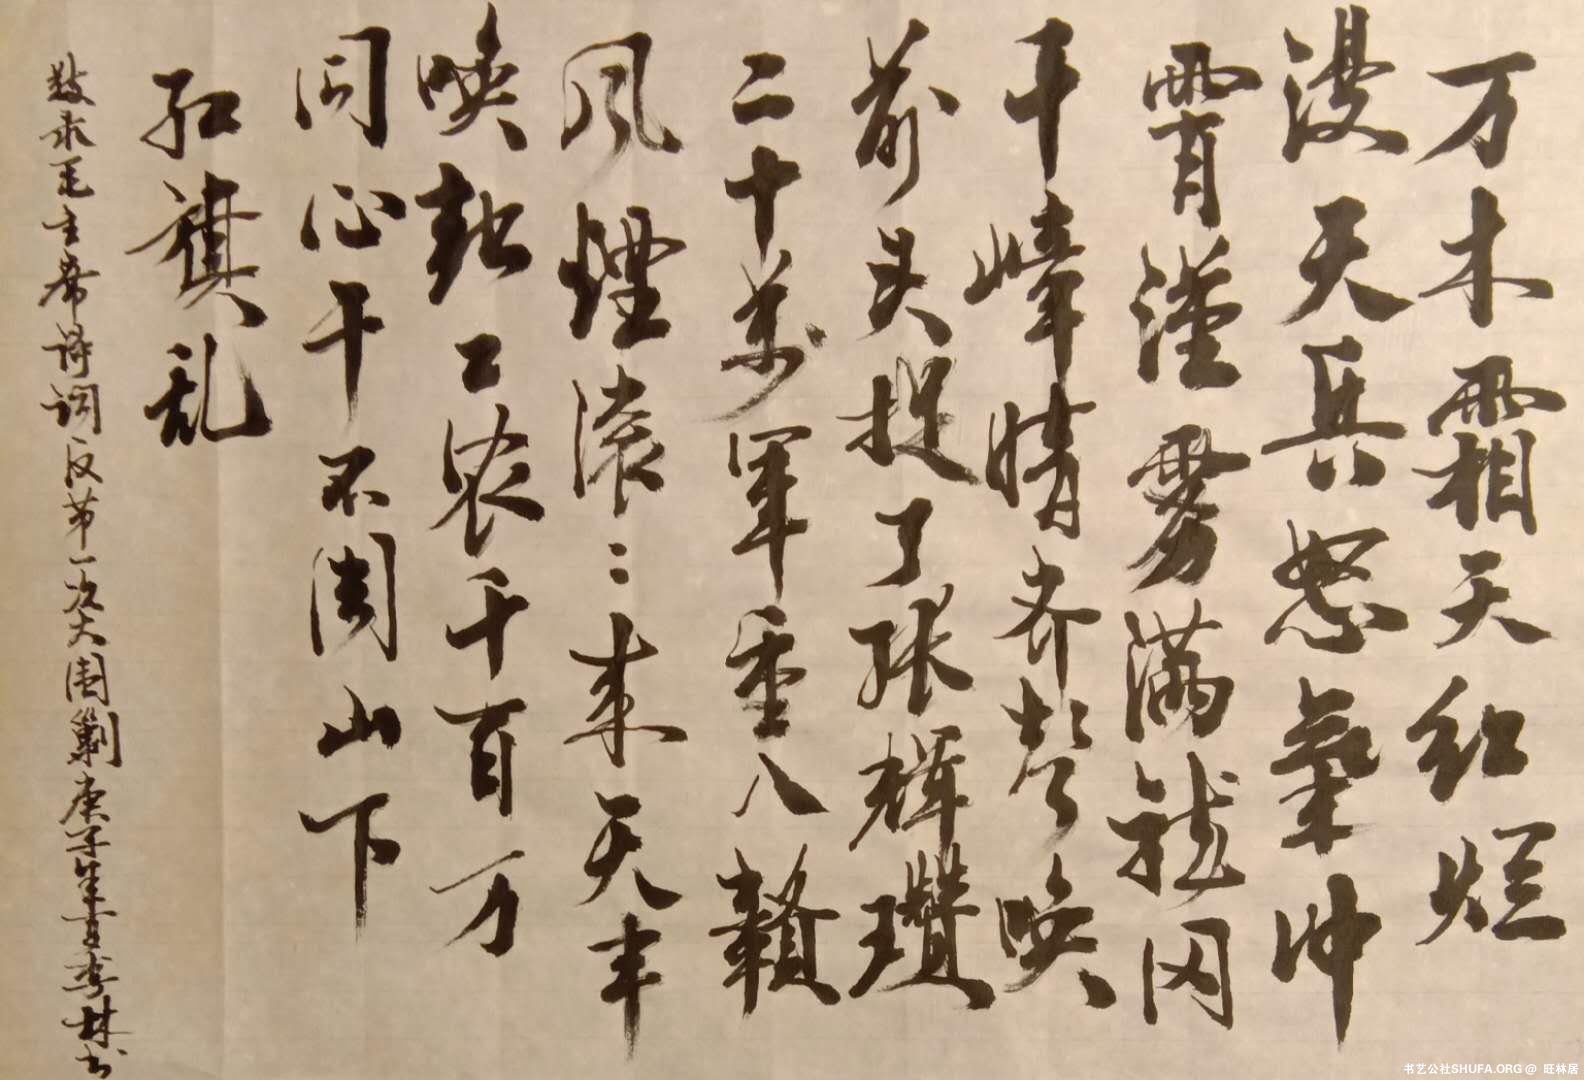 万木霜天红烂
漫天兵怒氣冲
霄漢雾满龙冈
千嶂暗齐声唤
前头捉了张輝瓚
二十萬軍重入贛
风煙滚〻来天半
唤起工农千百万
同心干不周山下
红旗乱
敬录毛主席诗词反第一次大围剿庚子年李林书
书艺公社SHUFA.ORG @ 旺林居